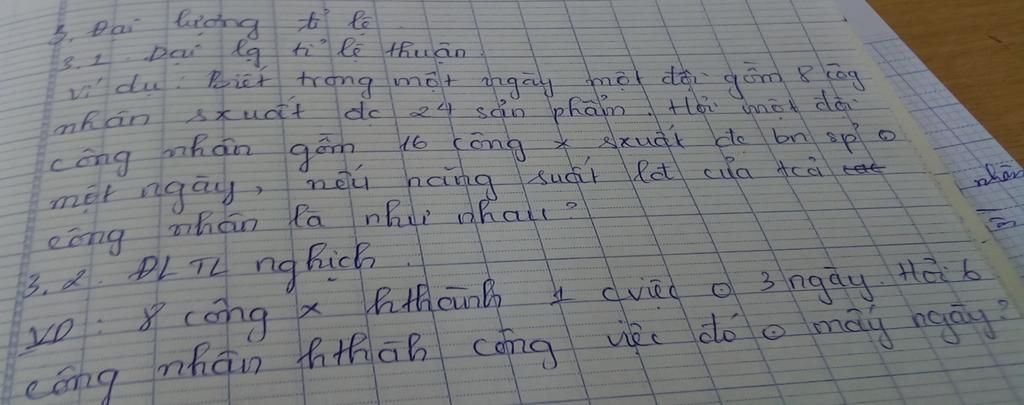 3. Đại lượng tỉ lệ
3.1. Đại lg tỉ lệ thuận.
ví dụ: Biết trong một ngày một đội gồm 8 công
nhân sxuất đc 24 sản phẩm. Hỏi một đội
công nhân gồm 16 công x sxuất đc bn sp ⊙
một ngày, nếu năng suất lđ của tcả
công nhân là như nhau?
3.2. ĐL TL nghịch.
VD: 8 công x hthành 1 cviệc ⊙ 3 ngày. Hỏi 6
công nhân hthàh công việc đó ⊙ mấy ngày?
nhân